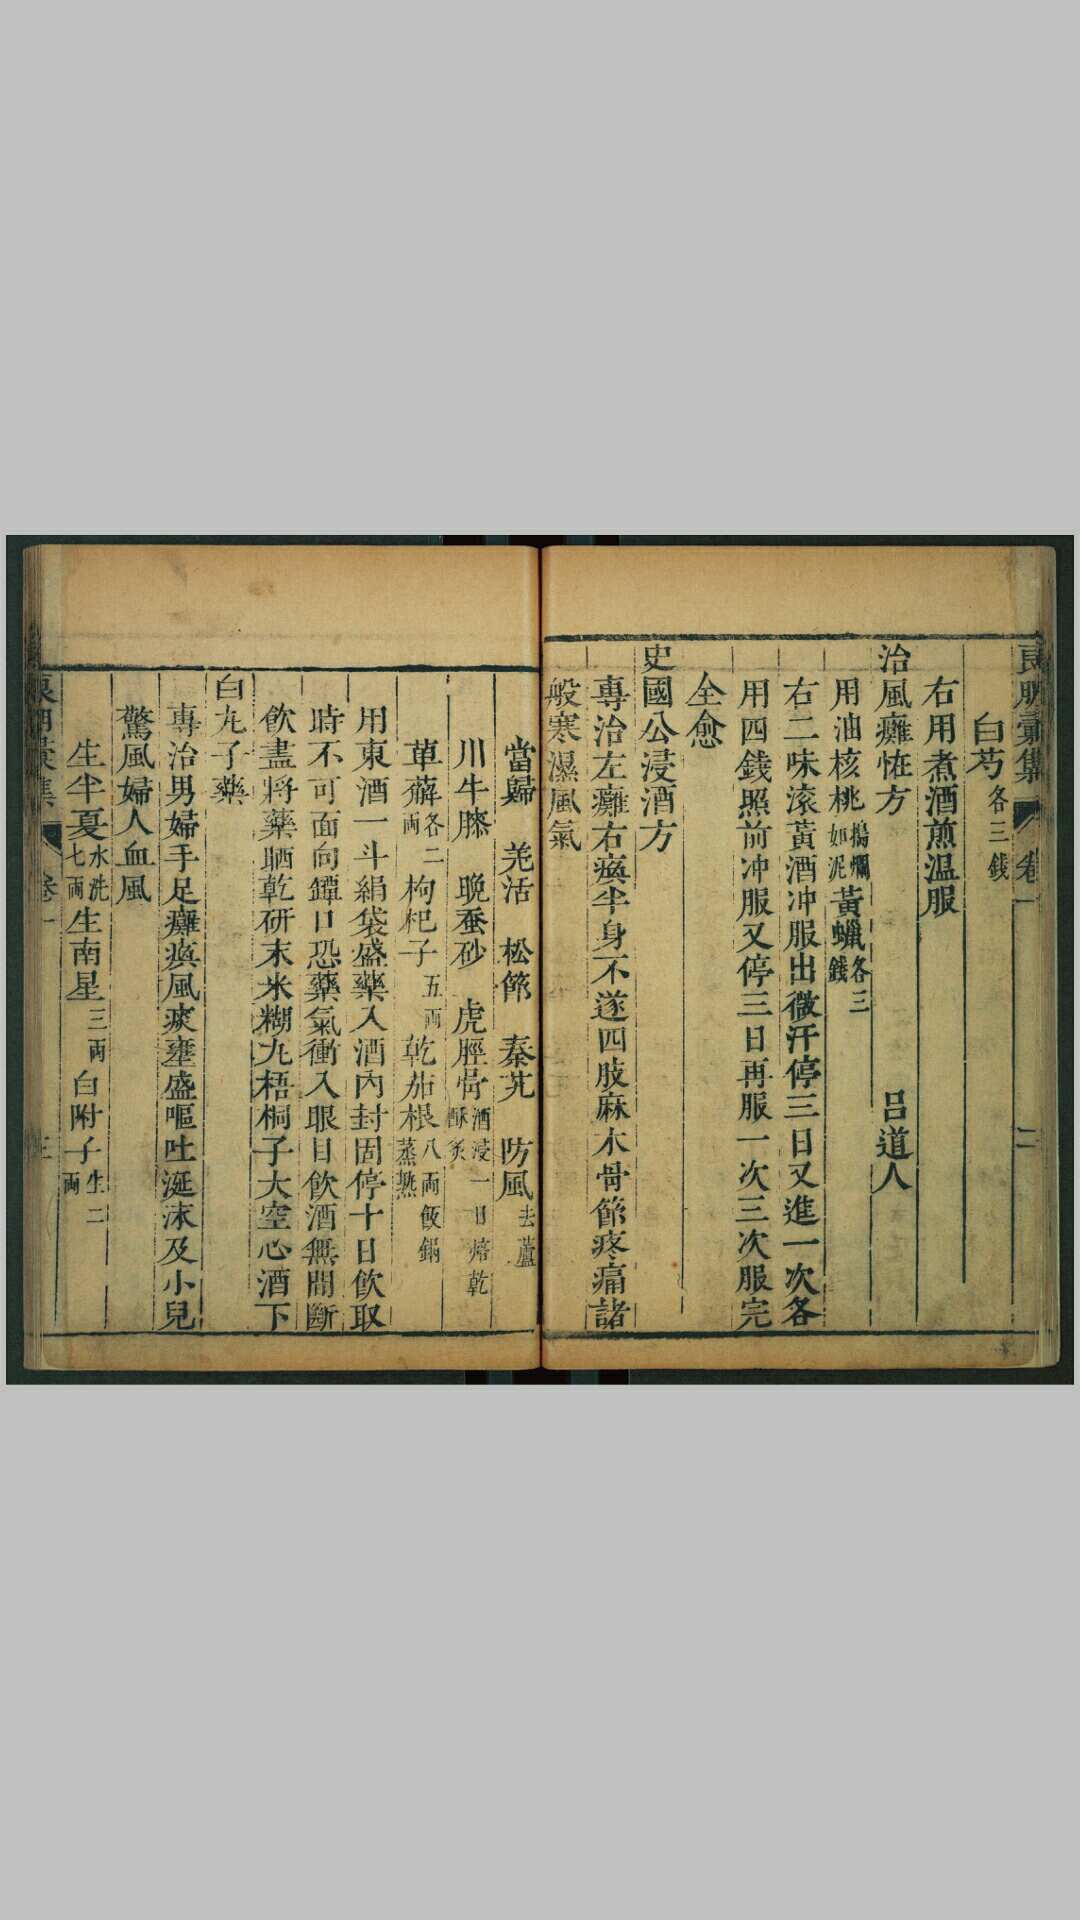 良朋彙集 卷一 二
白芍各三錢
右用煮酒煎温服
治風癱怪方 呂道人
用油核桃搗爛如泥黃蠟各三錢
右二味滚黃酒冲服出微汗停三日又進一次各
用四錢照前冲服又停三日再服一次三次服完
全愈
史國公浸酒方
專治左癱右瘓半身不遂四肢麻木骨節疼痛諸
般寒濕風氣
當歸 羌活 松節 秦艽 防風去蘆
川牛膝 晚蚕砂 虎脛骨酒浸一日焙乾酥炙
萆薢各二両枸杞子五両乾茄根八両飯鍋蒸熟
用東酒一斗絹袋盛藥入酒內封固停十日飲取
時不可面向罈口恐藥氣衝入眼目飲酒無間斷
飲盡將藥晒乾研末米糊丸梧桐子大空心酒下
白丸子藥
專治男婦手足癱瘓風痰壅盛嘔吐涎沫及小兒
驚風婦人血風
生半夏水洗七両生南星三両白附子生二両
良朋彙集 卷一 三